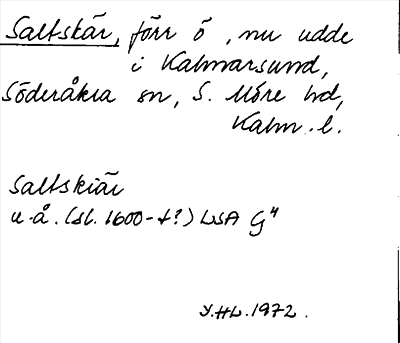 Saltskär, förr ö, nu udde
i Kalmarsund,
Söderåkra sn, S. Möre hd,
Kalm. l.
Saltskiär
u.å. (sl. 1600-t?) LSA G4
Y.HL.1972.